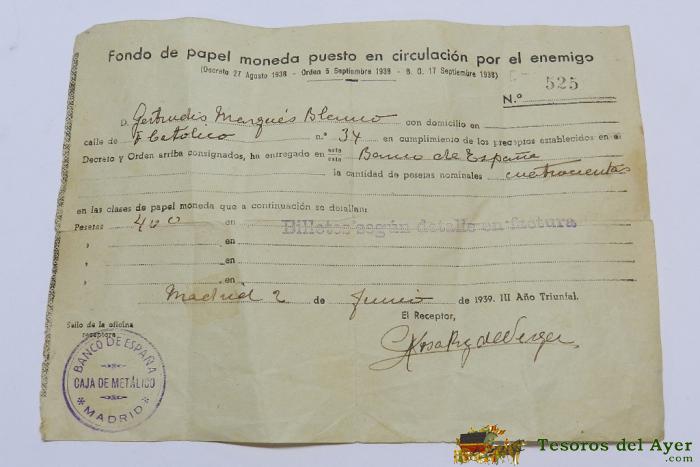 Fondo de papel moneda puesto en circulación por el enemigo
(Decreto 27 Agosto 1938 - Orden 5 Septiembre 1938 - B. O. 17 Septiembre 1938)
N.º 525
D. Gertrudis Marqués Blanco con domicilio en
calle de F Católico n.º 34 en cumplimiento de los preceptos establecidos en el
Decreto y Orden arriba consignados, ha entregado en este esta Banco de España
la cantidad de pesetas nominales cuatrocientas
en las clases de papel moneda que a continuación se detallan:
Pesetas 400 en Billetes según detalle en factura
» en
» en
» en
Madrid 2 de Junio de 1939. III Año Triunfal.
El Receptor,
Sello de la oficina
receptora
BANCO DE ESPAÑA
CAJA DE METÁLICO
MADRID
Tesoros del Ayer
.com